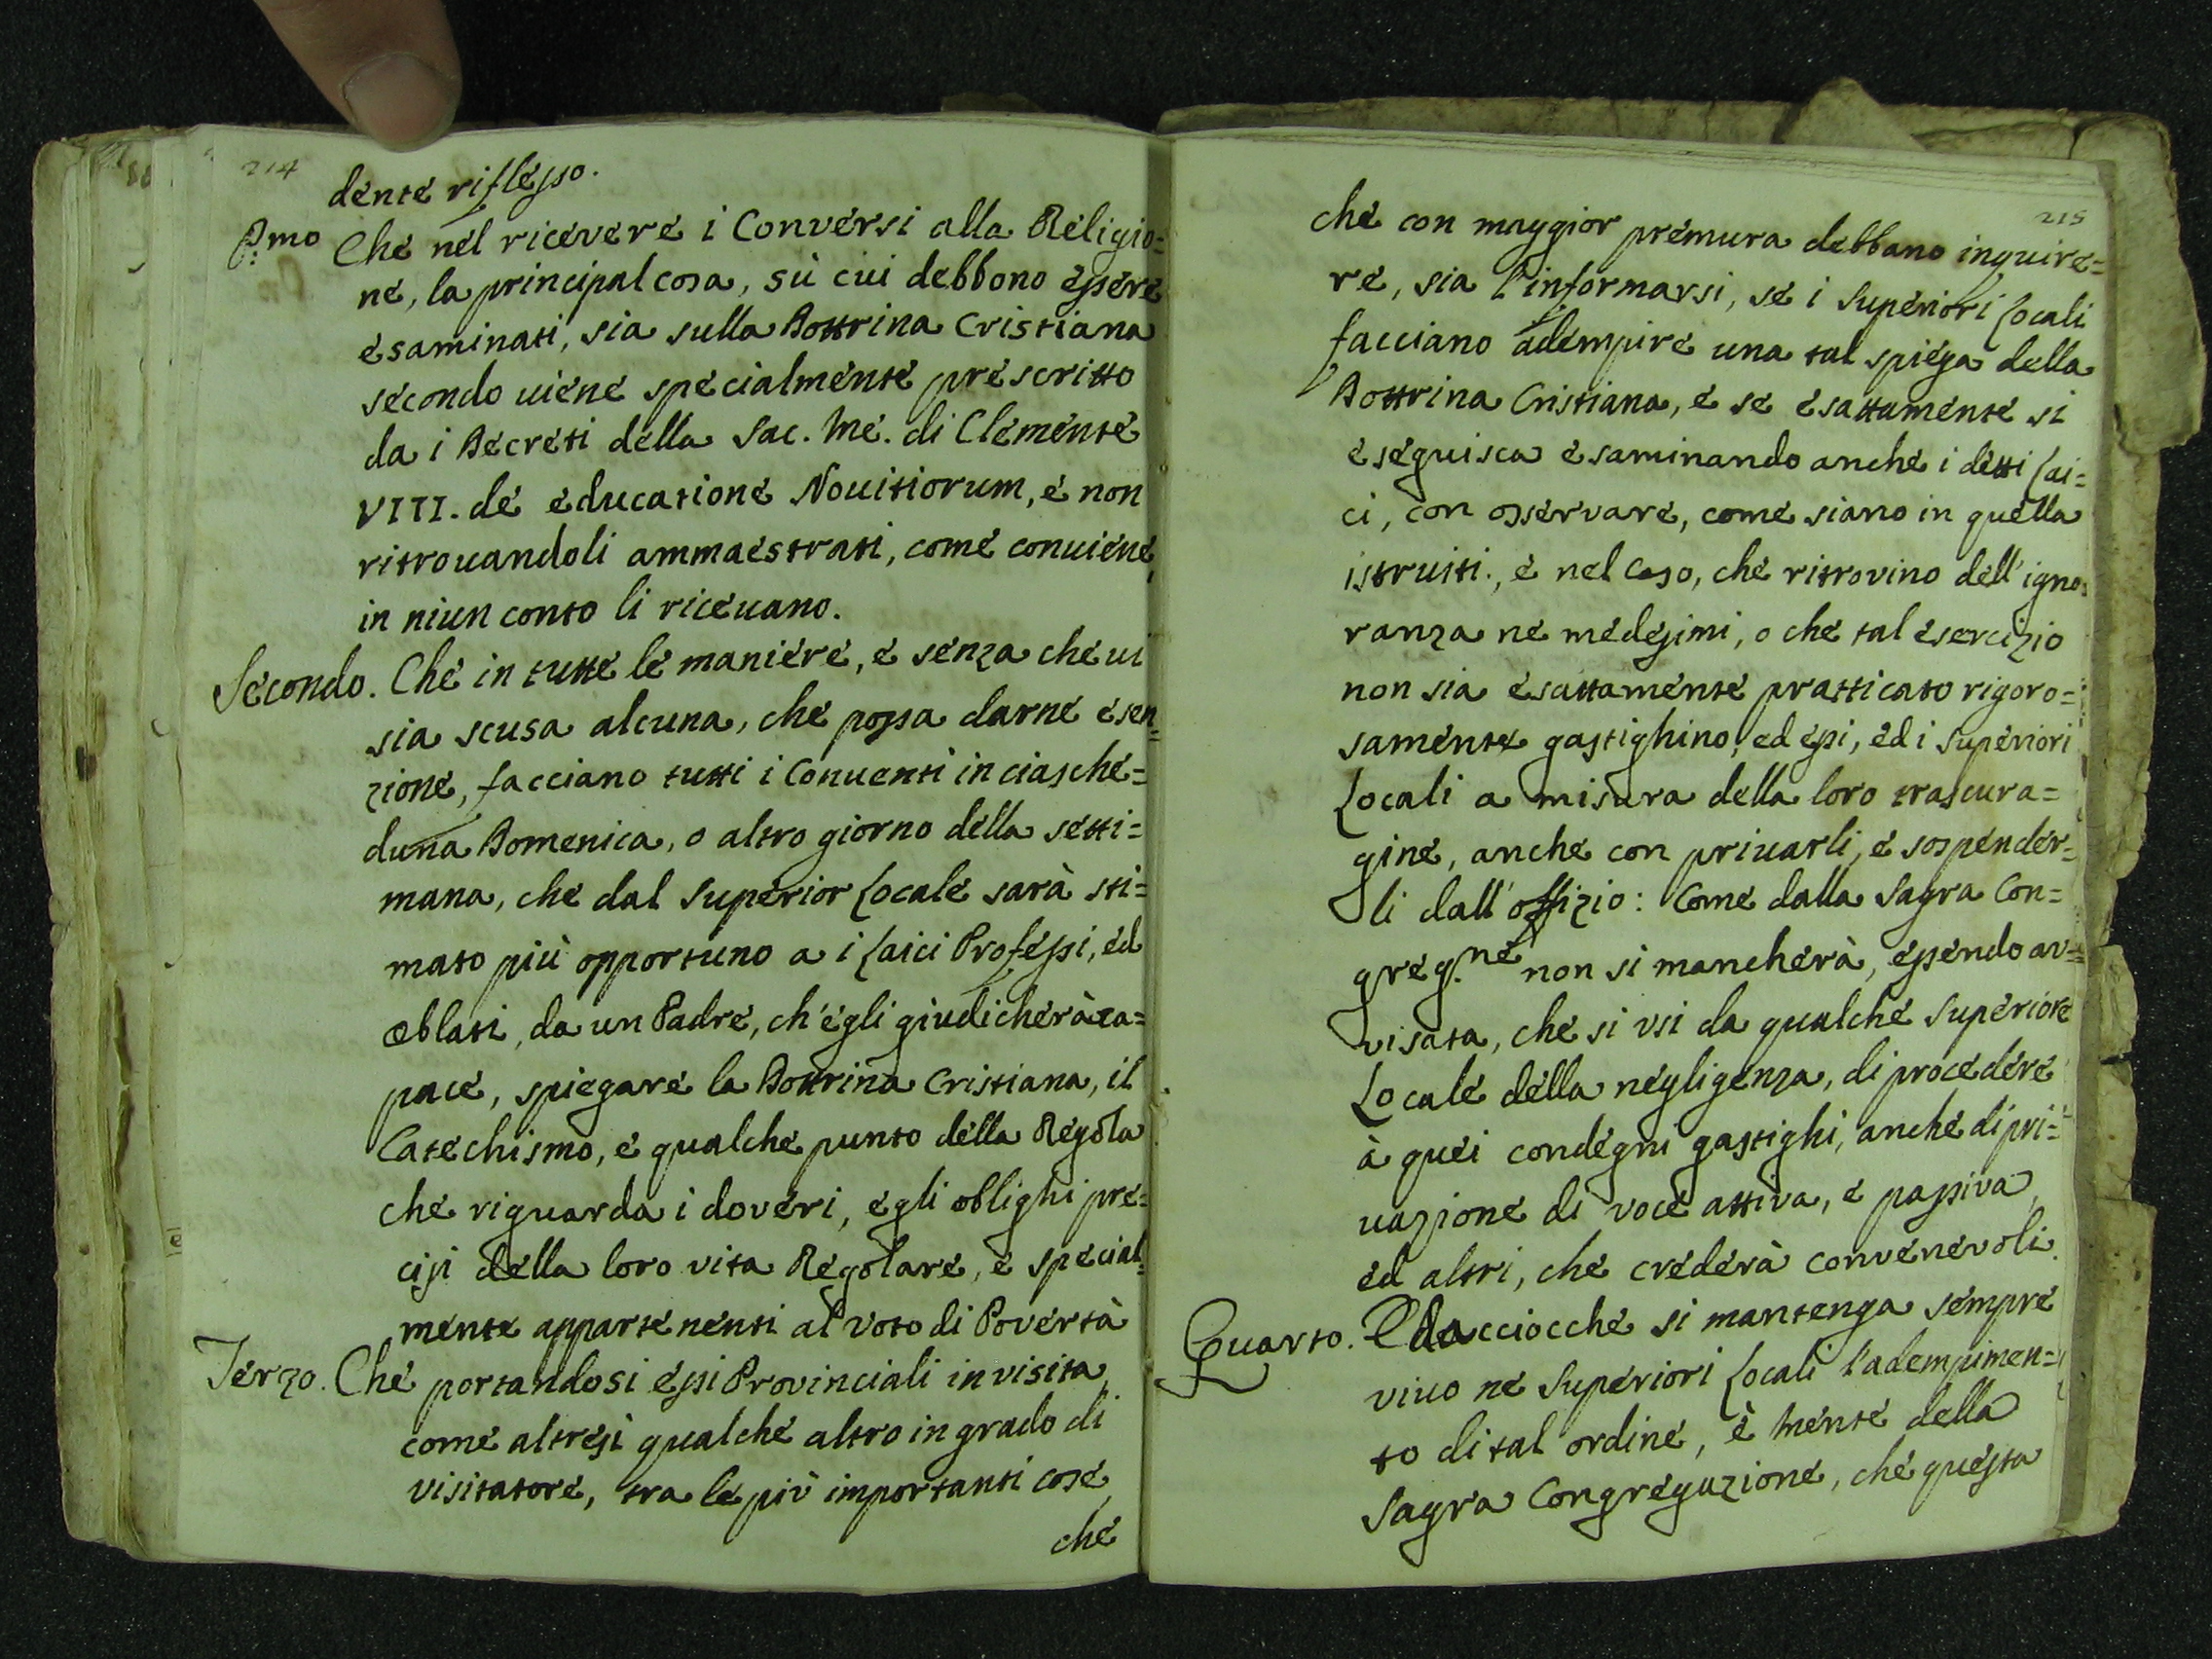 214
dente riflesso.
P.mo Che nel ricevere i Conversi alla Religio=
ne, la principal cosa, sù cui debbono essere
esaminati, sia sulla Dottrina Cristiana
secondo uiene specialmente prescritto
da i Decreti della Sac. Me. di Clemente
VIII. de educatione Nouitiorum, e non
ritrouandoli ammaestrati, come conuiene,
in niun conto li riceuano.
Secondo. Che in tutte le maniere, e senza che ui
sia scusa alcuna, che possa darne esen=
zione, facciano tutti i Conuenti in ciasche=
duna Domenica, o altro giorno della setti=
mana, che dal Superior Locale sarà sti=
mato più opportuno a i Laici Professi, ed
Oblati, da un Padre, ch'egli giudicherà ca=
pace, spiegare la Dottrina Cristiana, il
Catechismo, e qualche punto della Regola
che riguarda i doveri, e gli oblighi pre=
cisi della loro vita Regolare, e special=
mente appartenenti al voto di Povertà
Terzo. Che portandosi essi Provinciali in visita,
come altresì qualche altro in grado di
visitatore, tra le più importanti cose,
che
215
che con maggior premura debbano inquire=
re, sia l'informarsi, se i Superiori Locali
facciano adempire una tal spiega della
Dottrina Cristiana, e se esattamente si
eseguisca esaminando anche i detti Lai=
ci, con osservare, come siano in quella
istruiti., e nel caso, che ritrovino dell'igno=
ranza ne medesimi, o che tal esercizio
non sia esattamente pratticato rigoro=
samente gastighino, ed essi, ed i Superiori
Locali a misura della loro trascura=
gine, anche con priuarli, e sospender=
li dall'offizio: Come dalla Sagra Con=
greg.ne non si mancherà, essendo av=
visata, che si vsi da qualche Superiore
Locale della negligenza, di procedere
à quei condegni gastighi, anche di pri=
uazione di voce attiva, e passiva,
ed altri, che crederà convenevoli.
Quarto. Ed acciocchè si mantenga sempre
viuo ne Superiori Locali l'adempimen=
to di tal ordine, è Mente della
Sagra Congregazione, che questa